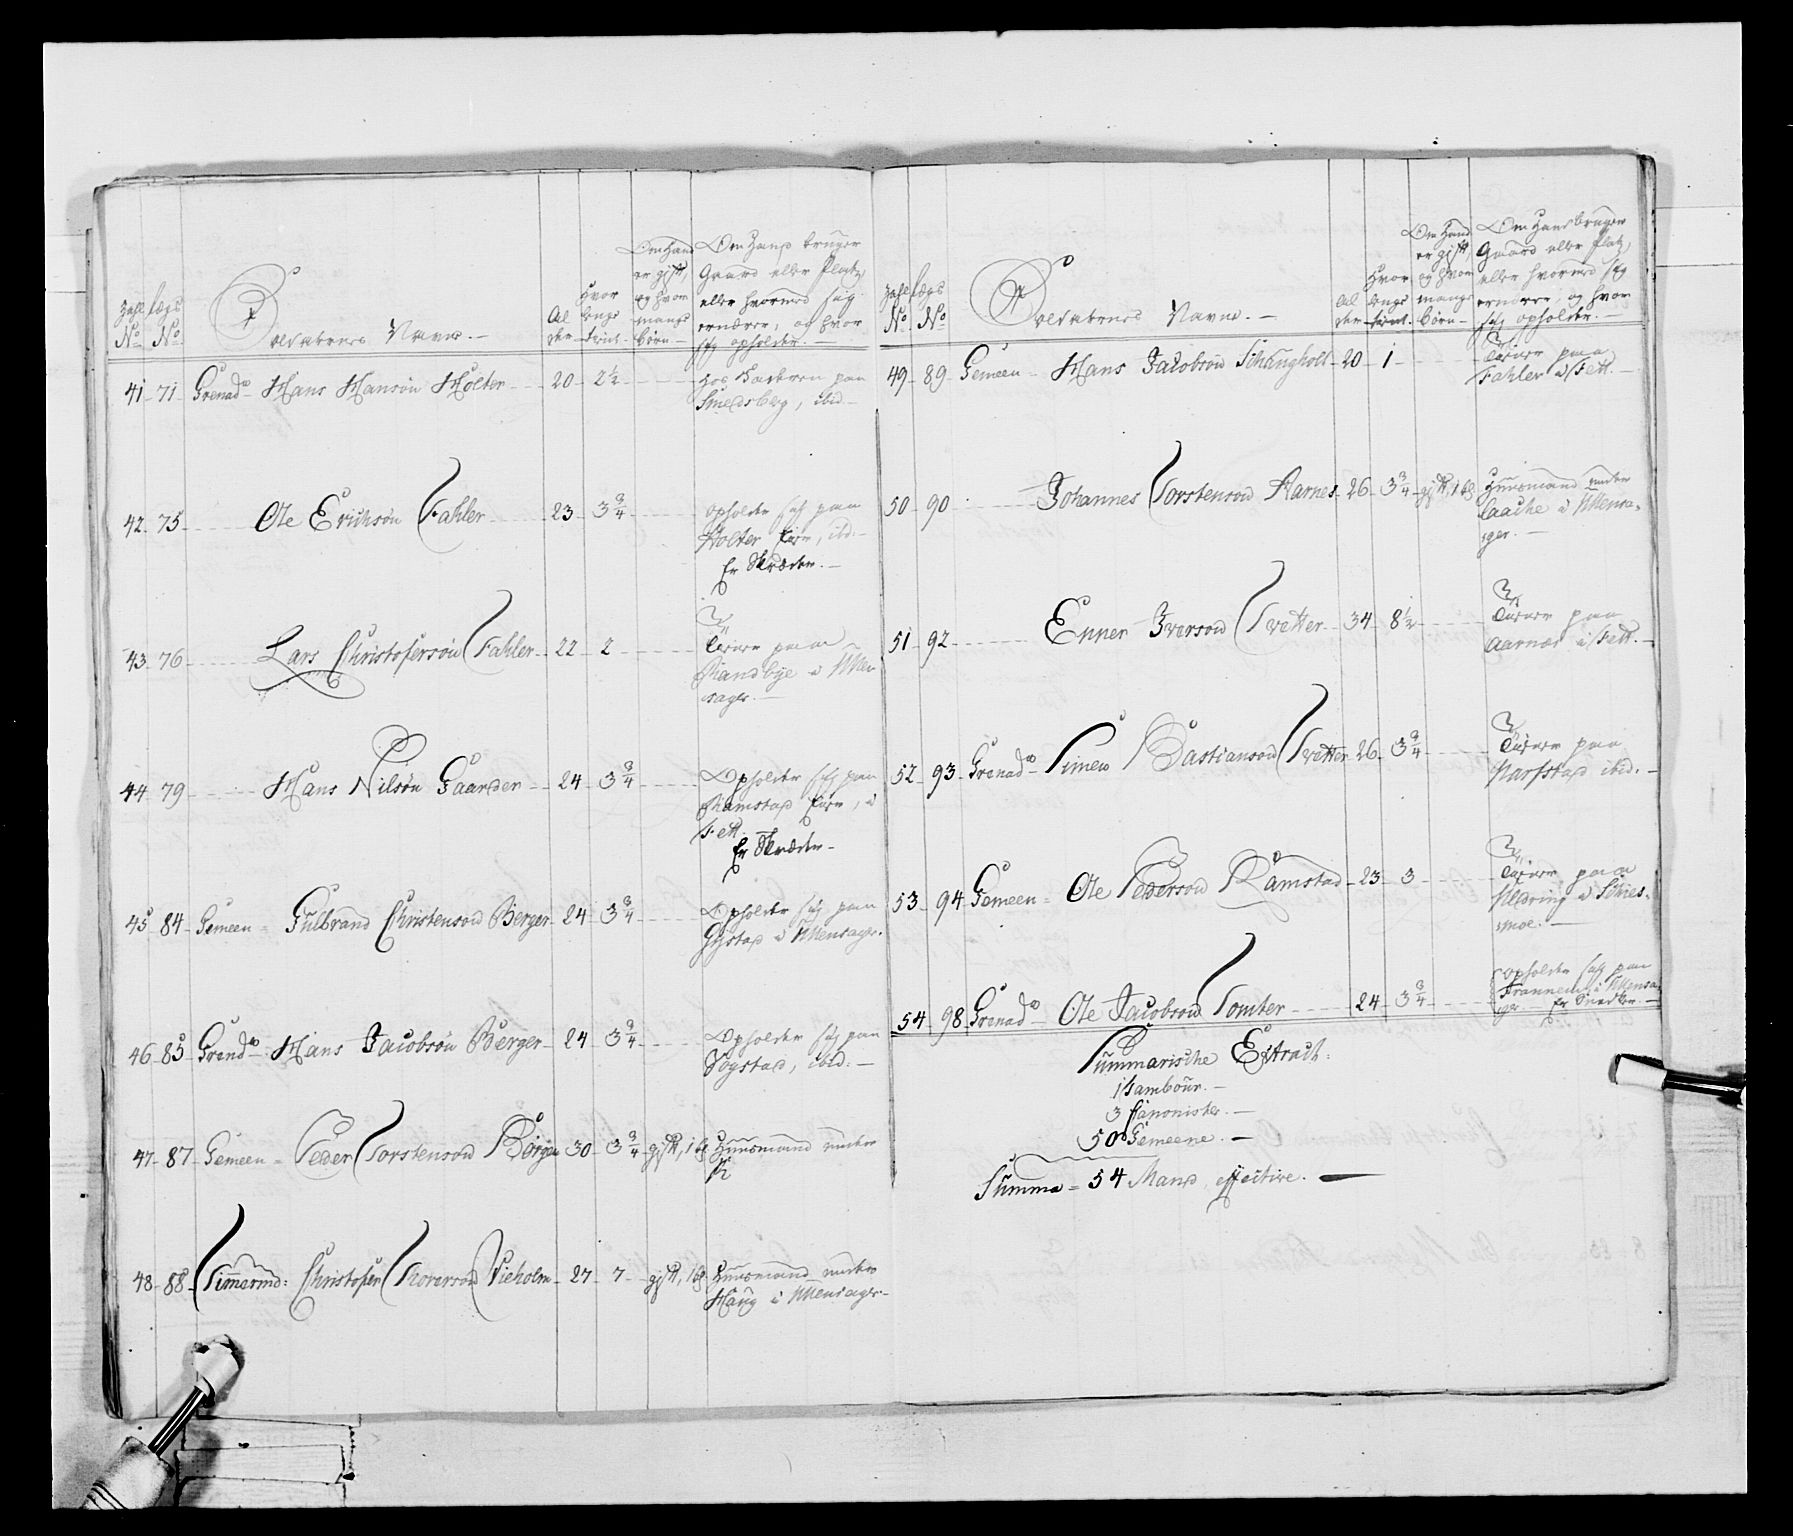 Zahl No.
Lægs No.
Soldaternes Navne.
Alder
Hvor længe tient.
Om Hand er gift, og hvor mange børn
Om Hand bruger Gaard eller Platz, eller hvormed sig ernærer, og hvor sig opholder.
41 71 Grenad. Hans Hansøn Holter 20 2 1/2 hos Faderen paa
Smedsberg, ibid.
42 75 Ole Erichsøn Fahler 23 3 3/4 opholder sig paa
Holter Eier, ibd.
Er Skræder.
43 76 Lars Christofersøn Fahler 22 2 Tiener paa
Randbye i Urensager.
44 79 Hans Nilsøn Gaarder 24 3 3/4 Opholder sig paa
Ramstad Eier, i
Fett.
Er Skræder
45 84 Gemeen Gulbrand Christensond Berger 24 3 3/4 Opholder sig paa
i Urensager.
46 85 Grend. Hans Jacobsøn Berger 24 3 3/4 Opholder sig paa
Søgstad, ibid.
47 87 Gemeen Peder Torstensond Børgen 30 3 3/4 gift, 1 b. Huusmand under
48 88 Timermd: Christofer Thoversond Vieholm 27 7 gift, 1 b. Huusmand under
Haug i Urensager
Zahl No.
Lægs No.
Soldaternes Navne.
Alder
Hvor længe tient.
Om Hand er gift, og hvor mange børn
Om Hand bruger Gaard eller Platz, eller hvormed sig ernærer, og hvor sig opholder.
49 89 Gemeen Hans Jacobsøn Schaugholt 20 1 Tiener paa
Fahler i Fett.
50 90 Johannes Torstensond Aarnes 26 3 3/4 gift, 1 b. Huusmand under
i Urensa-
ger.
51 92 Enner Iversond Tvetter 34 8 1/2 Tiener paa
Aarnæs i Fett.
52 93 Grenad. Simen Bastiansond Tvetter 26 3 3/4 Tiener paa
ibid.
53 94 Gemeen Ole Pedersond Ramstad 23 3 Tiener paa
i Schies-
moe.
54 98 Grenad. Ole Jacobsond Tomter 24 3 3/4 opholder sig paa
i Urensa-
ger. Er Snedker.
Summarische Extract:
1 Tambour.
3 Canonister.
50 Gemeene.
Summa = 54 Mand effective.